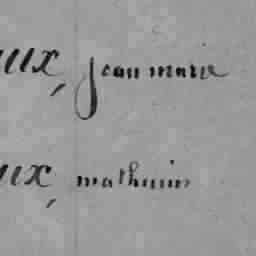 aux, jean marie
aux, mathurin